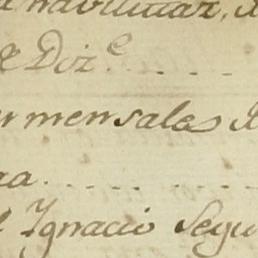 habilitar,
& Dizᵉ....
mensales
ra.......
Ignacio Segu